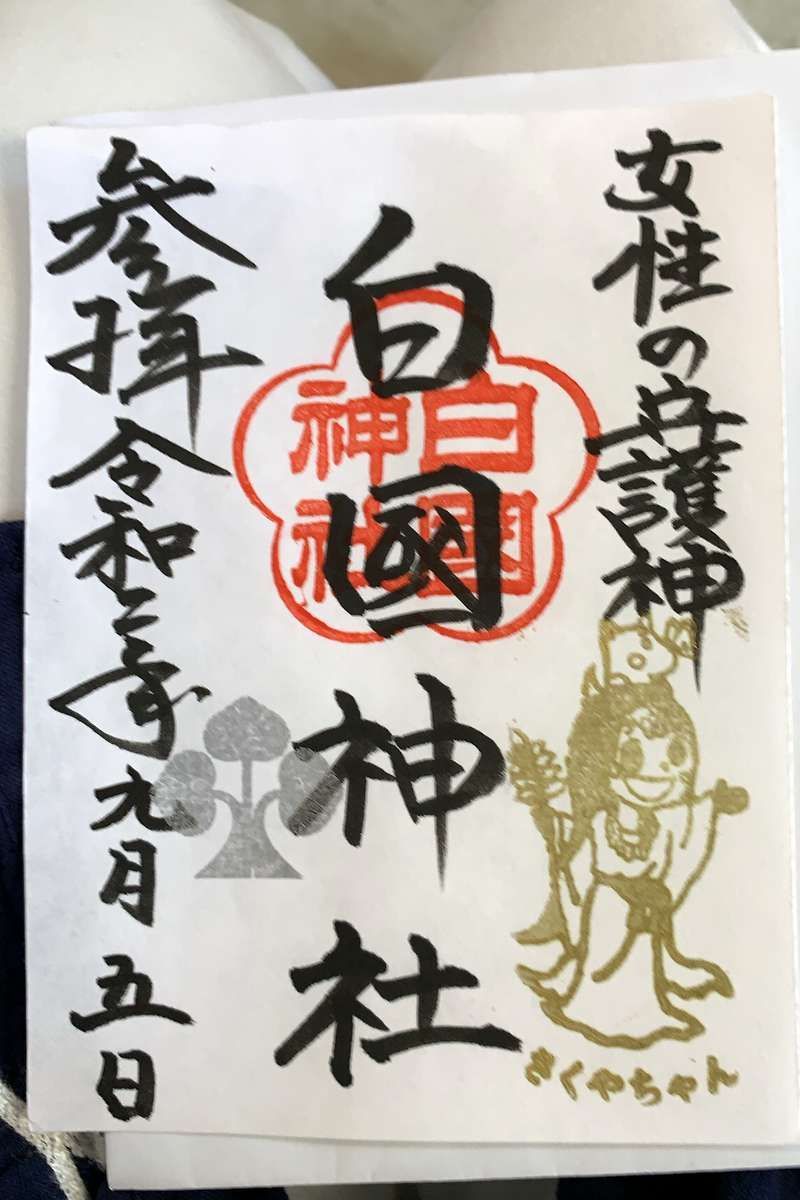 女性の守護神
白國神社
白國
神社
参拝 令和二年九月五日
さくやちゃん